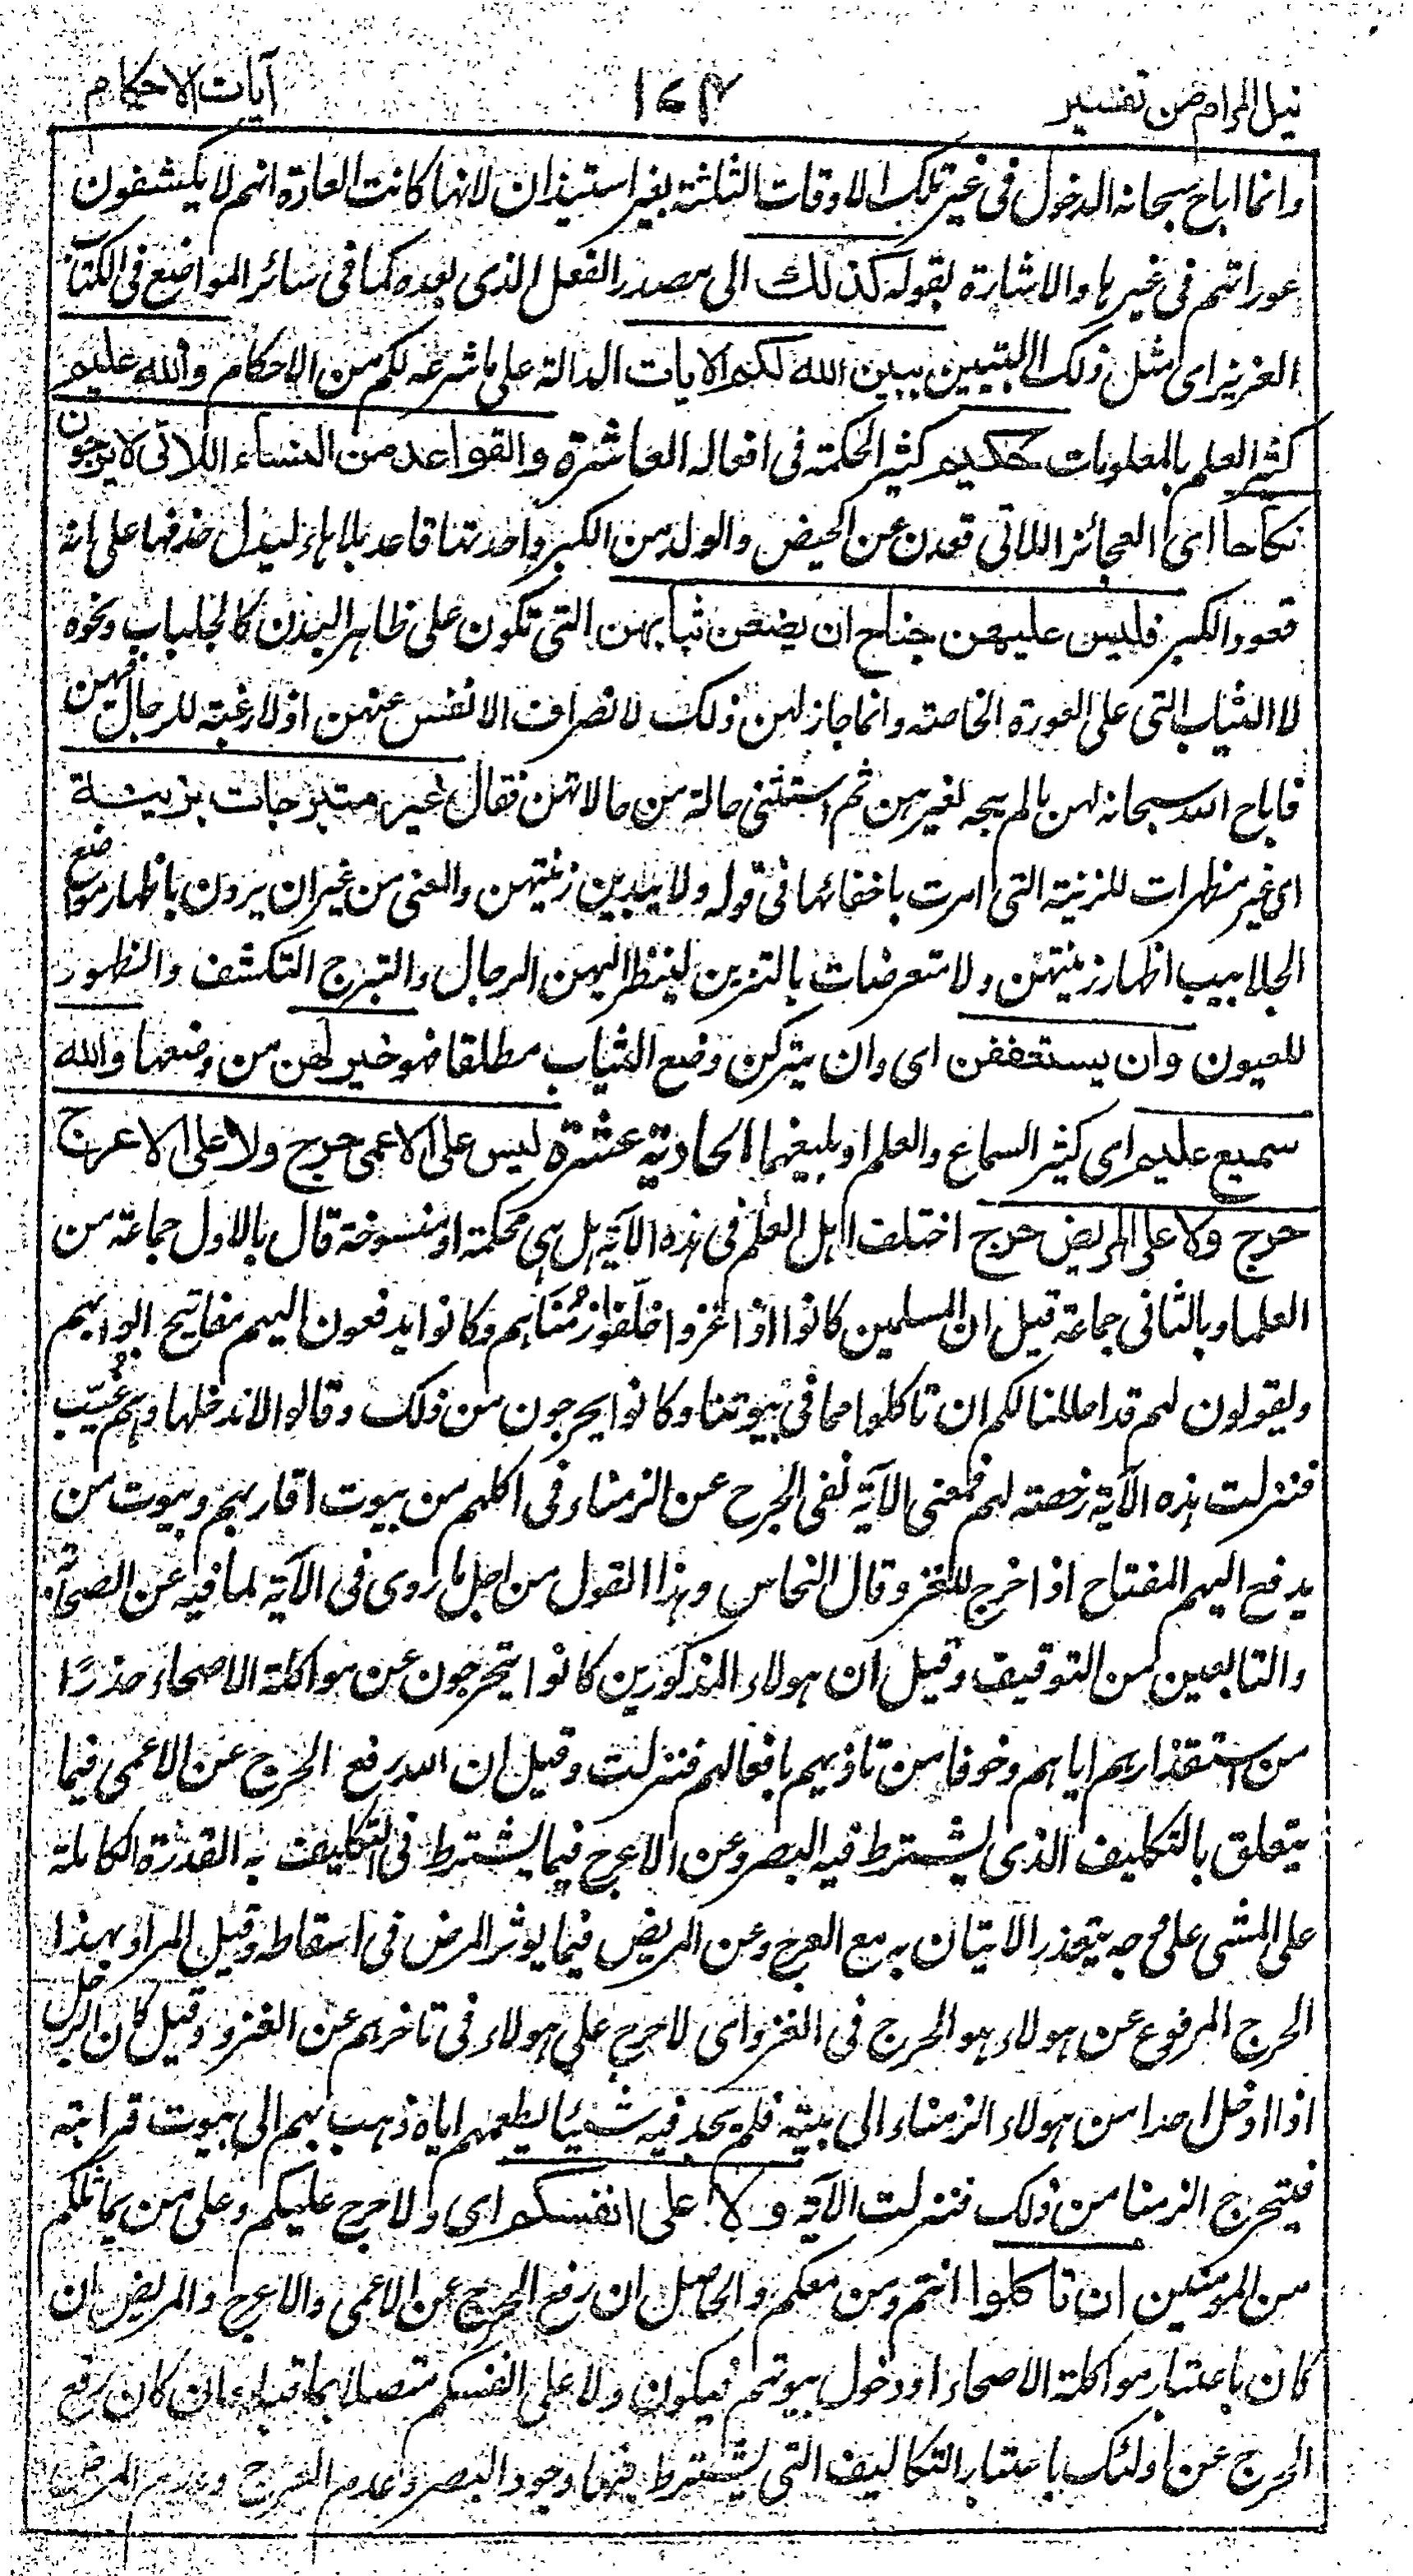 نيل المرام من تفسير
١٧٣
آيات الاحكام
وانما اباح سبحانه الدخول فى غير تلك الاوقات الثلثة بغير استيذان لانها كانت العادة انهم لا يكشفون
عوراتهم فى غيرها والاشارة بقوله كذلك الى مصدر الفعل الذى بعده كما فى سائر المواضع فى الكتاب
العزيز اى مثل ذلك التبيين يبين الله لكم الايات الدالة على ما شرعه لكم من الاحكام والله عليم
كثير العلم بالمعلومات حكيم كثير الحكمة فى افعاله العاشرة والقواعد من النساء اللاتى لا يرجون
نكاحا اى العجائز اللاتى قعدن عن الحيض والولد من الكبر واحدتها قاعد بلا هاء ليدل حذفها على انه
قعود الكبر فليس عليهن جناح ان يضعن ثيابهن التى تكون على ظاهر البدن كالجلباب ونحوه
لا الثياب التى على العورة الخاصة وانما جاز لهن ذلك لانصراف الانفس عنهن اذ لا رغبة للرجال فيهن
فاباح الله سبحانه لهن ما لم يبحه لغيرهن ثم استثنى حالة من حالاتهن فقال غير متبرجات بزينة
اى غير مظهرات للزينة التى امرت باخفائها فى قوله ولا يبدين زينتهن والمعنى من غير ان يردن باظهار مواضع
الجلابيب اظهار زينتهن ولا متعرضات بالتزين لينظر اليهن الرجال والتبرج التكشف والظهور
للعيون وان يستعففن اى وان يتركن وضع الثياب مطلقا فهو خير لهن من وضعها والله
سميع عليم اى كثير السماع والعلم او بليغهما الحادية عشرة ليس على الاعمى حرج ولا على الاعرج
حرج ولا على المريض حرج اختلف اهل العلم فى هذه الآية هل هى محكمة او منسوخة قال بالاول جماعة من
العلما وبالثانى جماعة قيل ان المسلمين كانوا اذا غزوا خلفوا زمناهم وكانوا يدفعون اليهم مفاتيح ابوابهم
ويقولون لهم قد احللنا لكم ان تاكلوا مما فى بيوتنا وكانوا يحرجون من ذلك وقالوا لا ندخلها وهم غيّب
فنزلت هذه الآية رخصة لهم فمعنى الآية نفى الحرج عن الزمناء فى اكلهم من بيوت اقاربهم وبيوت من
يدفع اليهم المفتاح اذا خرج للغزو قال النحاس وهذا القول من اجل ما روى فى الآية لما فيه عن الصحابة
والتابعين من التوقيف وقيل ان هولاء المذكورين كانوا يتحرجون عن مواكلة الاصحاء حذرًا
من استقذارهم اياهم وخوفا من تاذيهم بافعالهم فنزلت وقيل ان الله رفع الحرج عن الاعمى فيما
يتعلق بالتكليف الذى يشترط فيه البصر وعن الاعرج فيما يشترط فى التكليف به القدرة الكاملة
على المشى على وجه يتعذر الاتيان به مع العرج وعن المريض فيما يوثر المرض فى اسقاطه وقيل المراد بهذا
الحرج المرفوع عن هولاء هو الحرج فى الغزو اى لا حرج على هولاء فى تاخرهم عن الغزو وقيل كان الرجل
اذا ادخل احدا من هولاء الزمناء الى بيته فلم يجد فيه شيئا يطعمهم اياه ذهب بهم الى بيوت قرابته
فيتحرج الزمنا من ذلك فنزلت الآية ولا على انفسكم اى ولا حرج عليكم وعلى من يماثلكم
من المومنين ان تاكلوا انتم ومن معكم والحاصل ان رفع الحرج عن الاعمى والاعرج والمريض ان
كان باعتبار مواكلة الاصحاء او دخول بيوتهم فيكون ولا على انفسكم متصلا بما قبله وان كان رفع
الحرج عن اولئك باعتبار التكاليف التى يشترط فيها وجود البصر وعدم العرج وعدم المرض